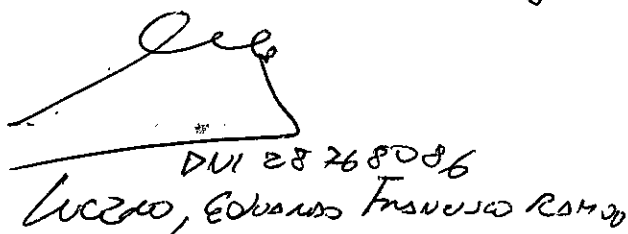 DNI 28768086
LUCERO, EDUARDO FRANCISCO RAMÓN